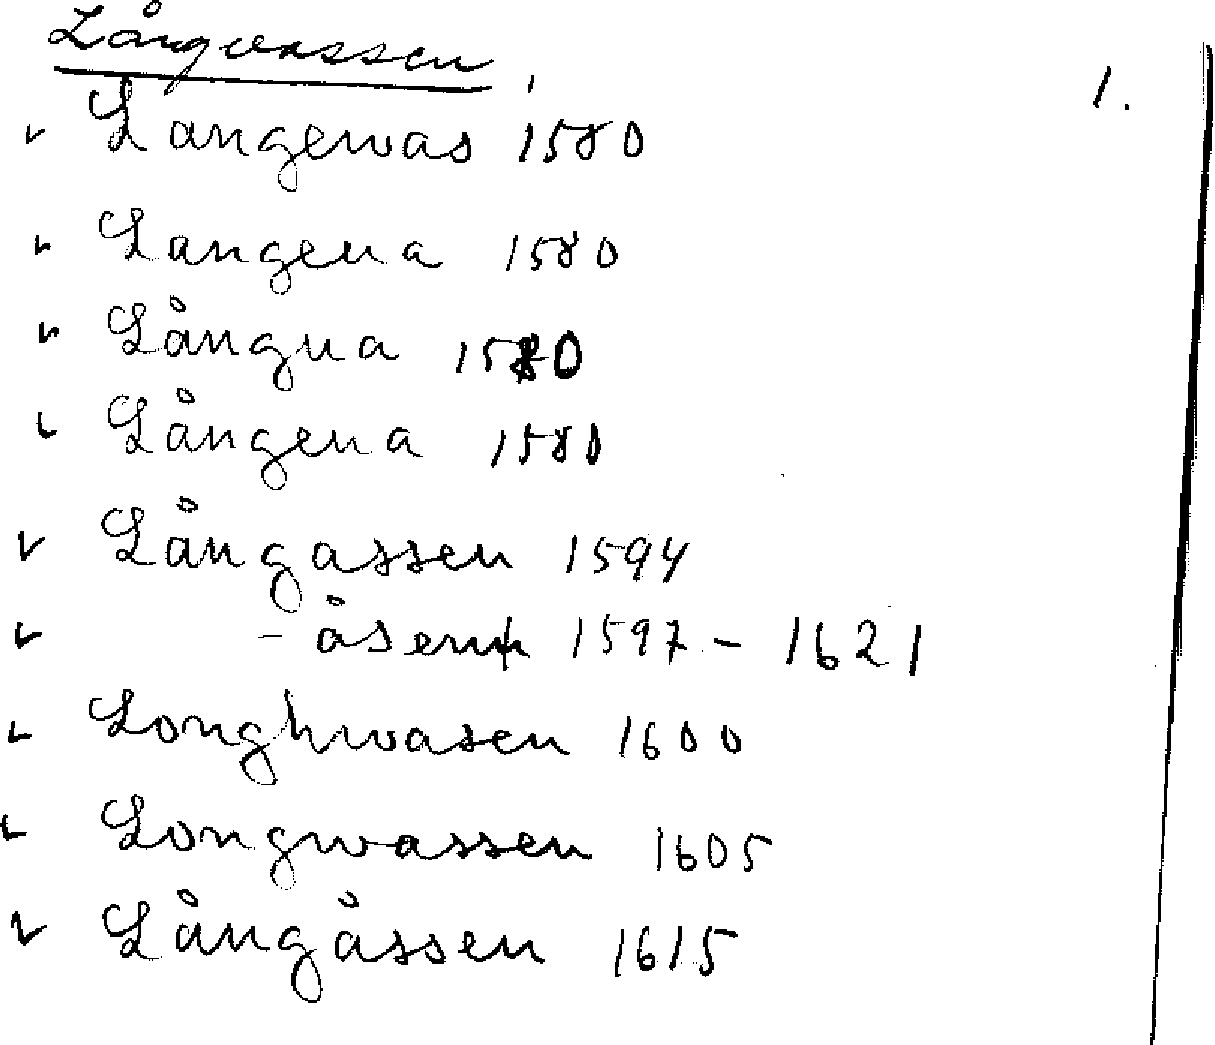 Långvassen
1.
Langewas 1580
Langeua 1580
Långua 1580
Långeua 1580
Långassen 1594
- åsenn 1597 - 1621
Longhwasen 1600
Longwassen 1605
Långåssen 1615